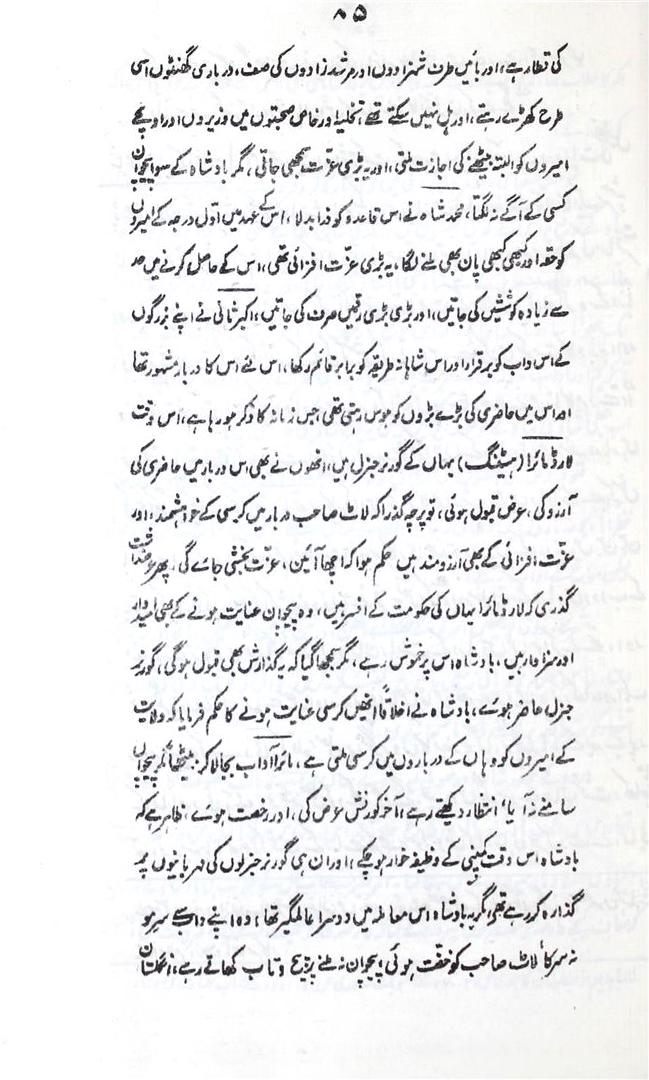 ۸۵
کی قطار ہے، اور بائیں طرف شہزادوں اور مرشد زادوں کی صف، درباری گھنٹوں اسی
طرح کھڑے رہتے، اور ہل نہیں سکتے تھے، تخلیہ اور خاص صحبتوں میں وزیروں اور اونچے
امیروں کو البتہ بیٹھنے کی اجازت ملتی، اور یہ بڑی عزّت سمجھی جاتی، مگر بادشاہ کے سوا پیچوان
کسی کے آگے نہ لگتا، محمد شاہ نے اس قاعدہ کو ذرا بدلا، اس کے عہد میں اوّل درجہ کے امیروں
کو حقہ اور کبھی کبھی پان بھی ملنے لگا، یہ بڑی عزّت افزائی تھی، اس کے حاصل کرنے میں حد
سے زیادہ کوششیں کی جاتیں، اور بڑی بڑی رقمیں صرف کی جاتیں، اکبر ثانی نے اپنے بزرگوں
کے اس داب کو برقرار اور اس شاہانہ طریقہ کو برابر قائم رکھا، اس لئے اس کا دربار مشہور تھا
اور اس میں حاضری کی بڑے بڑوں کو ہوس رہتی تھی، جس زمانہ کا ذکر ہو رہا ہے، اس وقت
لارڈ مائرا (ہیٹنگ) یہاں کے گورنر جنرل ہیں، انھوں نے بھی اس دربار میں حاضری کی
آرزو کی، عرض قبول ہوئی، تو پرچہ گذرا کہ لاٹ صاحب دربار میں کرسی کے خواہشمند، اور
عزّت افزائی کے بھی آرزومند ہیں حکم ہوا کہ اچھا آئیں، عزّت بخشی جائے گی، پھر عرضداشت
گذری کہ لارڈ مائرا یہاں کی حکومت کے افسر ہیں، وہ پیچوان عنایت ہونے کے بھی امیدوار
اور سزاوار ہیں، بادشاہ اس پر خموش رہے، مگر سمجھا گیا کہ یہ گذارش بھی قبول ہوگی، گورنر
جنرل حاضر ہوئے، بادشاہ نے اخلاقاً انھیں کرسی عنایت ہونے کا حکم فرمایا کہ ولایت
کے امیروں کو وہاں کے درباروں میں کرسی ملتی ہے، مائرا آداب بجا لا کر بیٹھا، مگر پیچواں
سامنے نہ آیا، انتظار دیکھتے رہے، آخر کورنش عرض کی، اور رخصت ہوئے، ظاہر ہے کہ
بادشاہ اس وقت کمپنی کے وظیفہ خوار ہو چکے، اور ان ہی گورنر جنرلوں کی مہربانیوں پر
گذارہ کر رہے تھے، مگر یہ بادشاہ اس معاملہ میں دوسرا عالمگیر تھا، وہ اپنے داب سے سرمو
نہ سرکا لاٹ صاحب کو خفّت ہوئی، پیچوان نہ ملنے پر پیچ و تاب کھاتے رہے، انگلستان